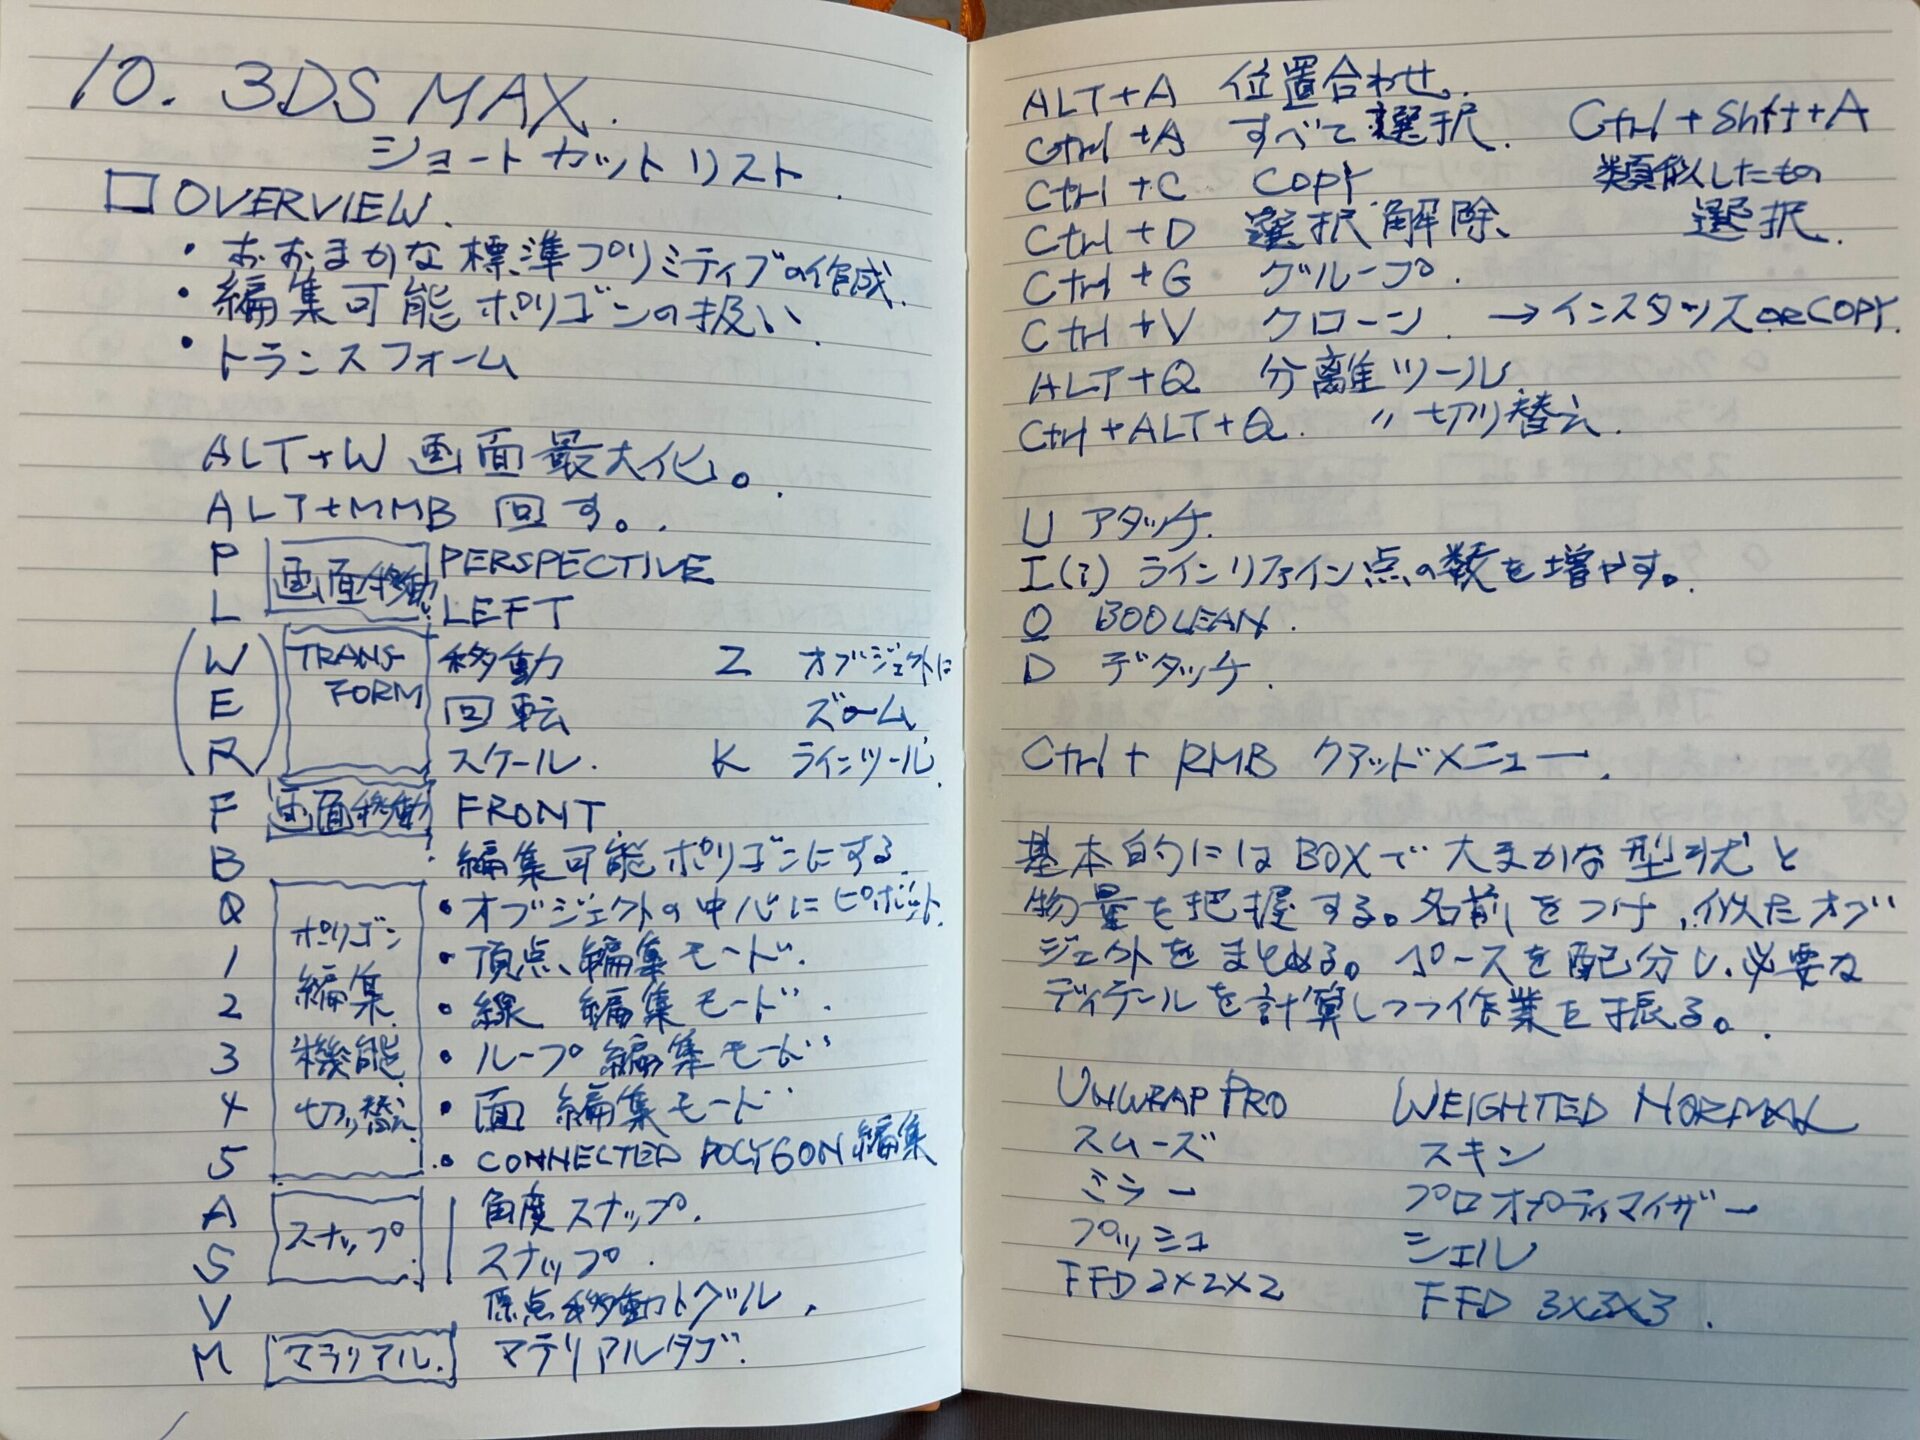 10. 3DS MAX.
ショートカットリスト.
□ OVERVIEW.
・おおまかな標準プリミティブの作成.
・編集可能ポリゴンの扱い.
・トランスフォーム
ALT+W 画面最大化。.
ALT+MMB 回す。.
P 画面移動 PERSPECTIVE
L LEFT
W TRANS-FORM 移動 Z オブジェクトに
E 回転 ズーム
R スケール. K ラインツール.
F 画面移動 FRONT
B ・編集可能ポリゴンにする
Q ポリゴン ・オブジェクトの中心にピボット.
1 編集 ・頂点編集モード.
2 機能 ・線 編集モード.
3 切り替え ・ループ 編集モード
4 ・面 編集モード
5 ・CONNECTED POLYGON 編集
A スナップ 角度スナップ.
S スナップ.
V 原点移動トグル.
M マテリアル. マテリアルタブ.
ALT+A 位置合わせ.
Ctrl+A すべて選択. Ctrl+Shft+A
Ctrl+C COPY 類似したもの
Ctrl+D 選択解除、 選択.
Ctrl+G グループ.
Ctrl+V クローン. →インスタンス OR COPY.
ALT+Q 分離ツール
Ctrl+ALT+Q. 〃 切り替え.
U アタッチ.
I(i) ラインリファイン点の数を増やす。.
O BOOLEAN.
D デタッチ.
Ctrl+RMB クアッドメニュー.
基本的にはBOXで大まかな型状と
物量を把握する。名前をつけ、似たオブ
ジェクトをまとめる。ペースを配分し、必要な
ディテールを計算しつつ作業を振る。.
UNWRAP PRO WEIGHTED NORMAL
スムーズ スキン
ミラー プロオプティマイザー
プッシュ シェル
FFD 2×2×2 FFD 3×3×3.